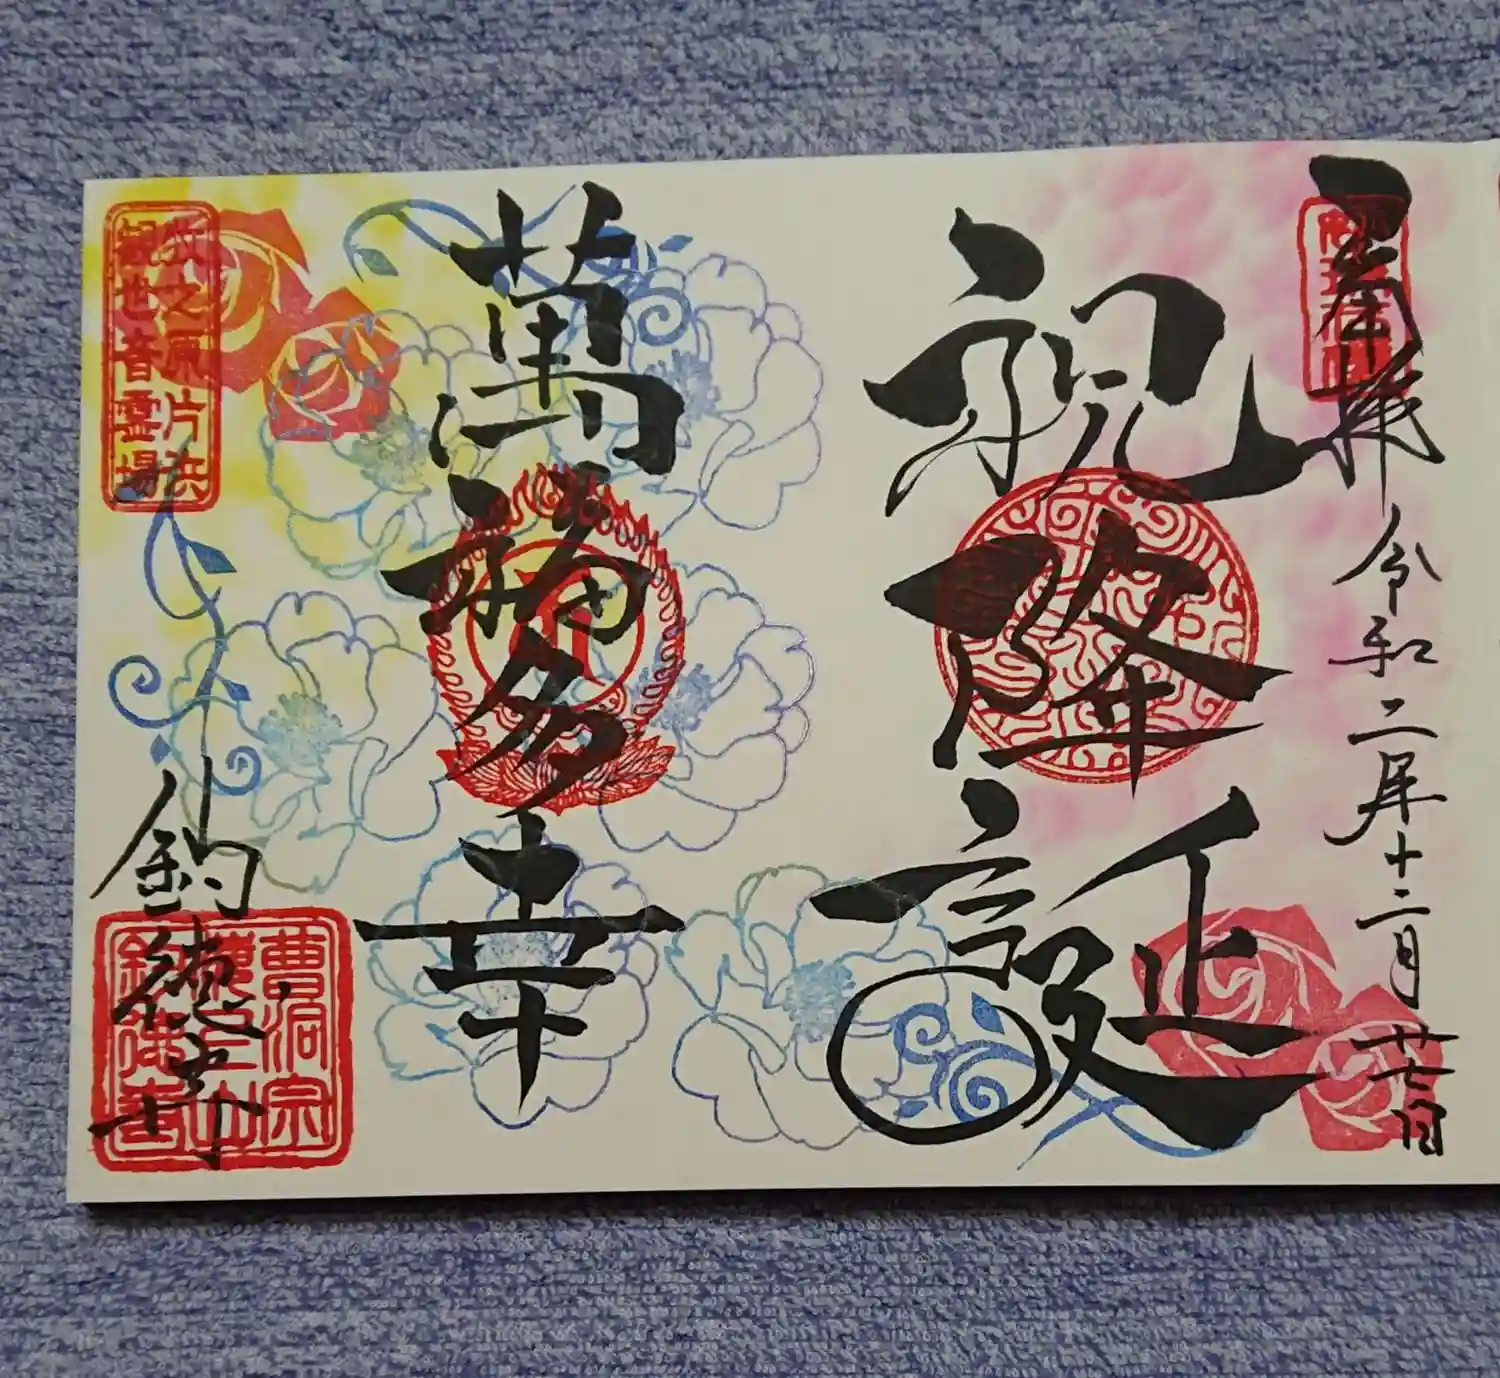 奉拝
令和二年十二月廿七日
祝降誕
萬福多幸
牧之原片浜
観世音霊場
釣徳寺
曹洞宗
釣徳寺